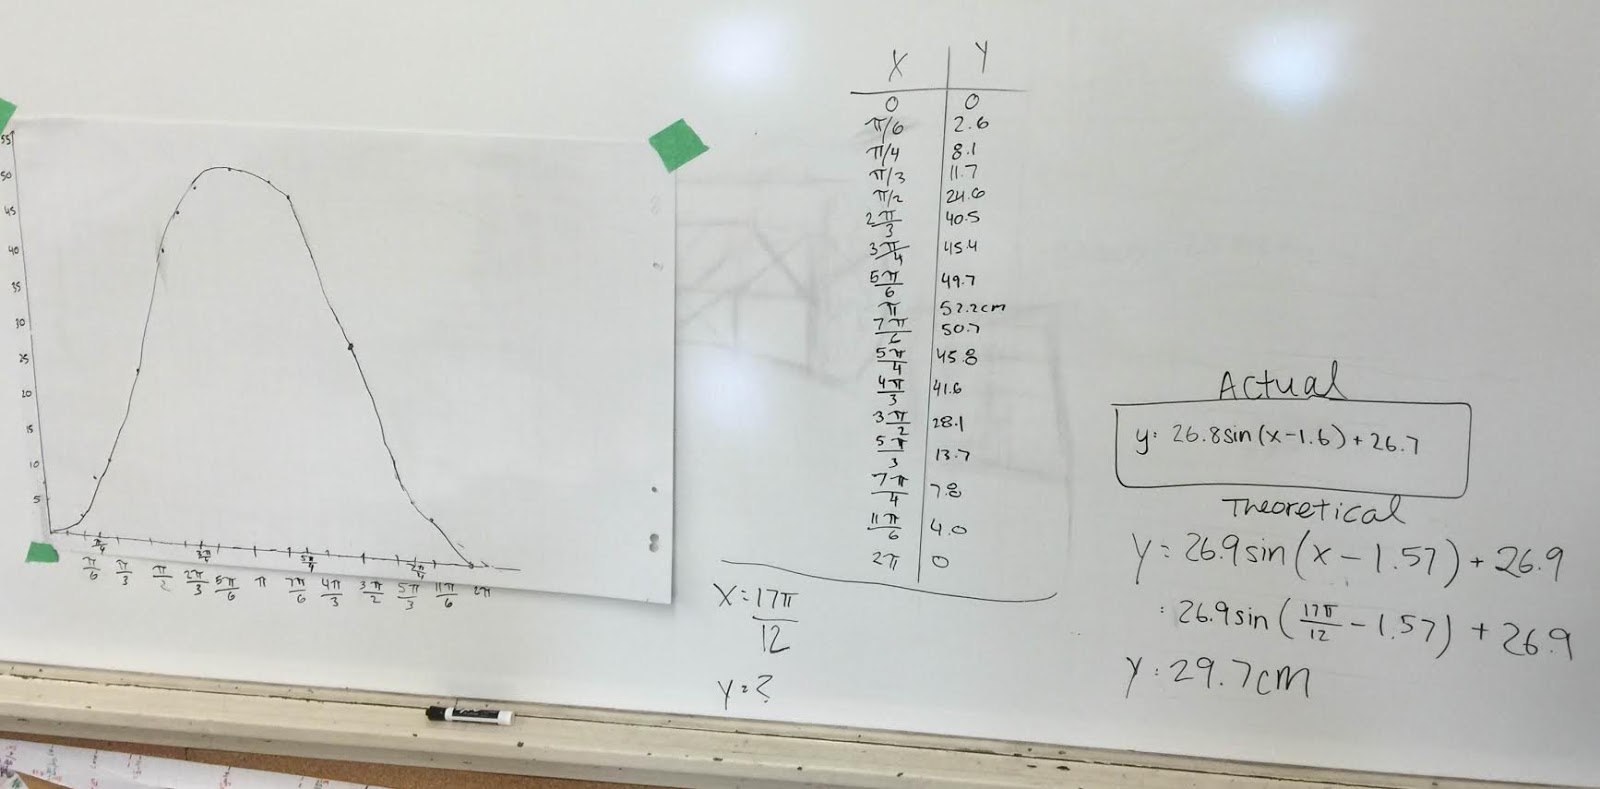 55
50
45
40
35
30
25
10
15
10
5
π/4
3π/4
5π/4
π/6 π/3 π/2 2π/3 5π/6 π 7π/6 4π/3 3π/2 5π/3 11π/6 2π
X Y
0 0
π/6 2.6
π/4 8.1
π/3 11.7
π/2 24.6
2π/3 40.5
3π/4 45.4
5π/6 49.7
π 52.2cm
7π/6 50.7
5π/4 45.8
4π/3 41.6
3π/2 28.1
5π/3 13.7
7π/4 7.8
11π/6 4.0
2π 0
X=17π/12
y=?
Actual
y: 26.8sin(x-1.6)+26.7
Theoretical
Y=26.9sin(x-1.57)+26.9
:26.9sin(17π/12-1.57)+26.9
Y:29.7cm